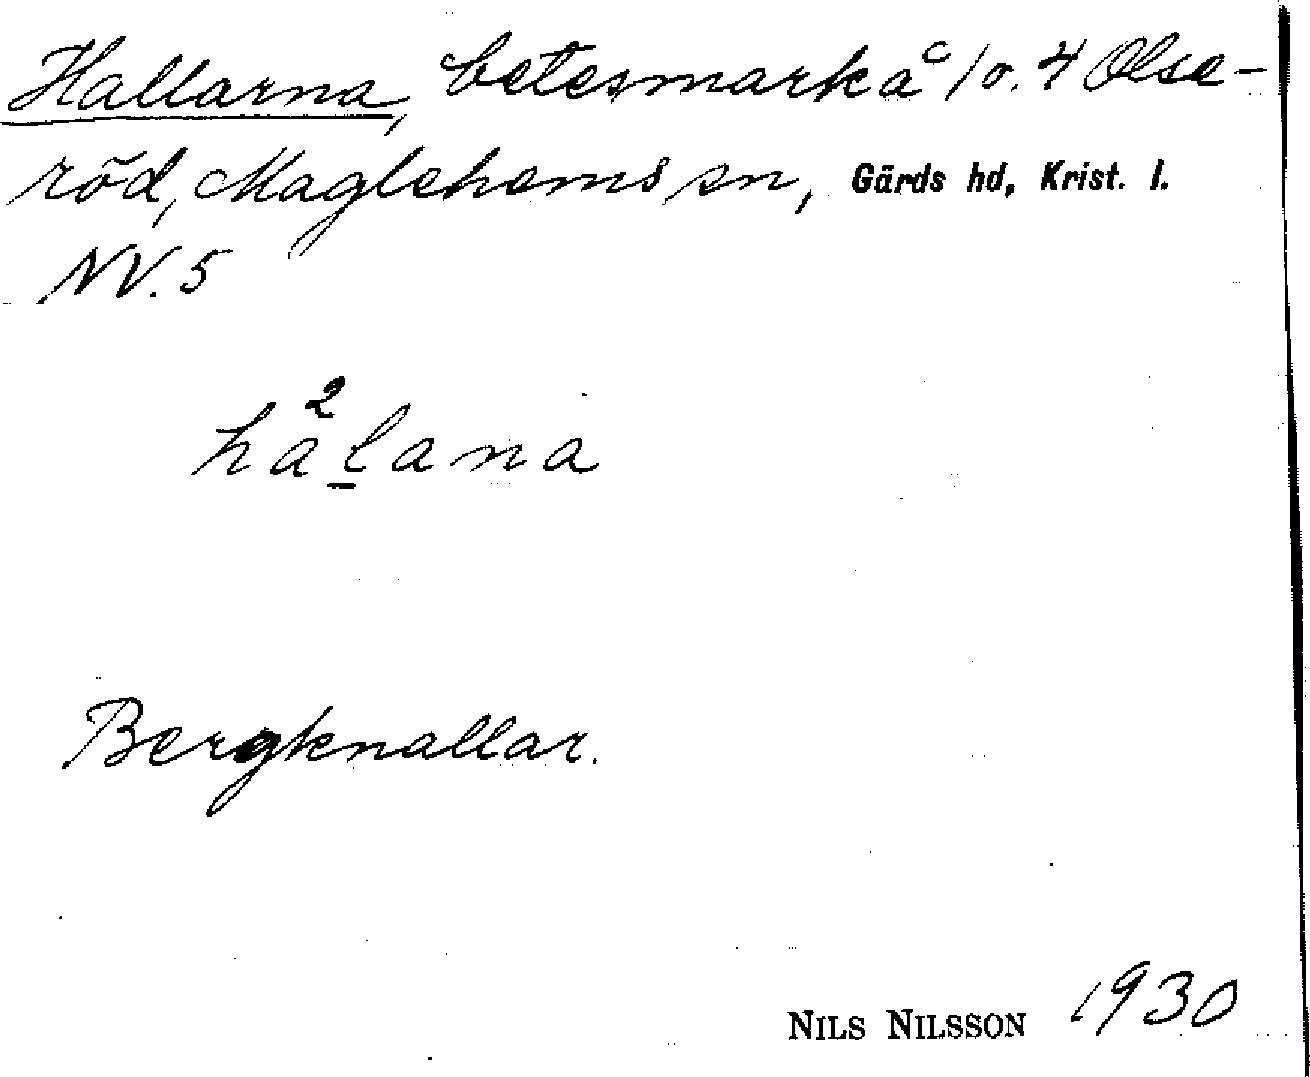 Hallarna, betesmark å 1 o. 4 Olse-
röd, Maglehems sn, Gärds hd, Krist. l.
NV. 5
hå²lana
Bergknallar.
NILS NILSSON 1930